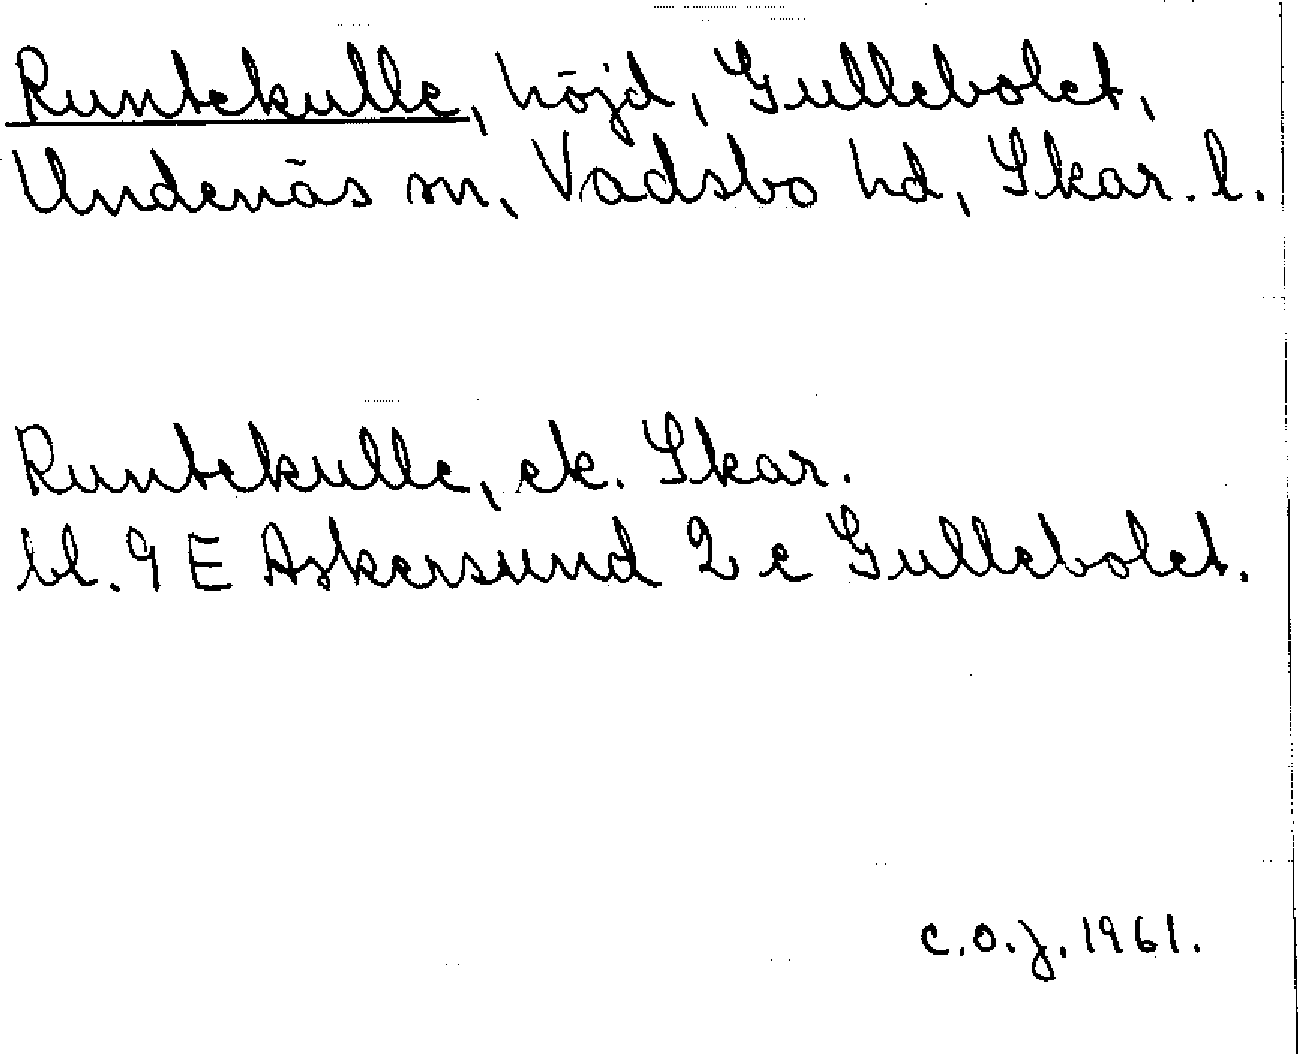 Runtekulle, höjd, Gullebolet,
Undenäs sn, Vadsbo hd, Skar. l.
Runtekulle, ek. Skar.
bl. 9 E Askersund 2 c Gullebolet.
C.O.J. 1961.